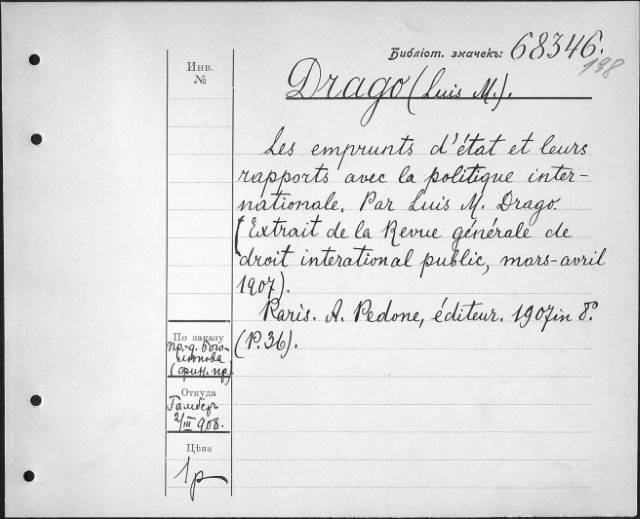 Библіот. значекъ: 68346.
198
Инв.
№
Drago (Luis M.).
Les emprunts d'état et leurs
rapports avec la politique inter-
nationale. Par Luis M. Drago.
(Extrait de la Revue générale de
droit interational public, mars-avril
1907).
Paris. A. Pedone, éditeur. 1907 in 8º.
(P.36).
По заказу
пр.-д. Бого-
лѣпова
(фин. пр.)
Откуда
Гамберъ
2/III 908.
Цѣна
1 р